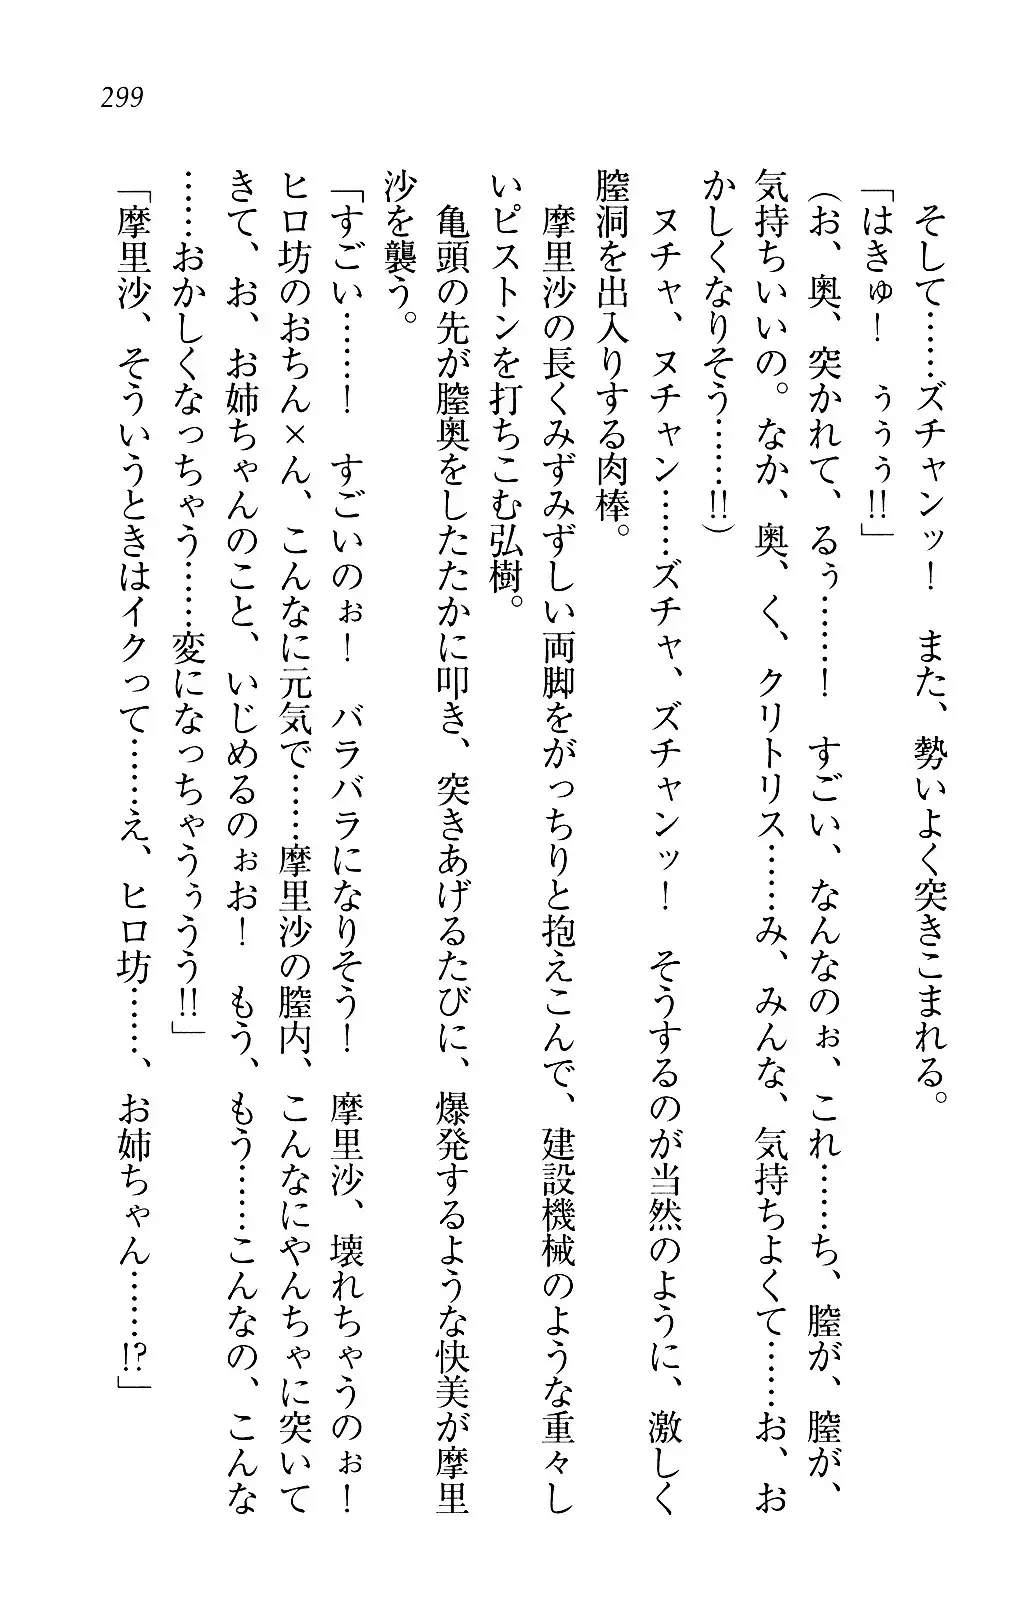 299
そして……ズチャンッ！　また、勢いよく突きこまれる。
「はきゅ！　ぅぅぅ!!」
（お、奥、突かれて、るぅ……！　すごい、なんなのぉ、これ……ち、膣が、膣が、
気持ちいいの。なか、奥、く、クリトリス……み、みんな、気持ちよくて……お、お
かしくなりそう……!!）
ヌチャ、ヌチャン……ズチャ、ズチャンッ！　そうするのが当然のように、激しく
膣洞を出入りする肉棒。
摩里沙の長くみずみずしい両脚をがっちりと抱えこんで、建設機械のような重々し
いピストンを打ちこむ弘樹。
亀頭の先が膣奥をしたたかに叩き、突きあげるたびに、爆発するような快美が摩里
沙を襲う。
「すごい……！　すごいのぉ！　バラバラになりそう！　摩里沙、壊れちゃうのぉ！
ヒロ坊のおちん×ん、こんなに元気で……摩里沙の膣内、こんなにやんちゃに突いて
きて、お、お姉ちゃんのこと、いじめるのぉお！　もう、もう……こんなの、こんな
……おかしくなっちゃう……変になっちゃうぅうう!!」
「摩里沙、そういうときはイクって……え、ヒロ坊……、お姉ちゃん……!?」